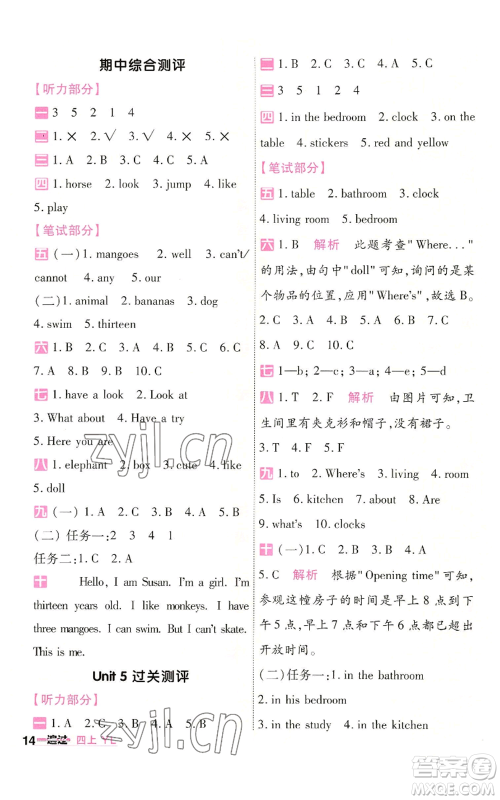 期中综合测评
【听力部分】
一 3 5 2 1 4
二 1. × 2. √ 3. √ 4. × 5. ×
三 1. B 2. B 3. C 4. C 5. A
四 1. horse 2. look 3. jump 4. like
5. play
【笔试部分】
五 (一) 1. mangoes 2. well 3. can't/
cannot 4. any 5. our
(二) 1. animal 2. bananas 3. dog
4. swim 5. thirteen
六 1. B 2. C 3. A 4. C 5. B 6. C
7. A 8. B 9. B 10. C
七 1. have a look 2. Look at
3. What about 4. Have a try
5. Here you are
八 1. elephant 2. box 3. cute 4. like
5. doll
九 (一) 1. C 2. A 3. B
(二) 任务一: 2 3 4 1
任务二: 1. A 2. B 3. A
十
Hello, I am Susan. I'm a girl. I'm
thirteen years old. I like monkeys. I have
three mangoes. I can swim. But I can't skate.
This is me.
Unit 5 过关测评
【听力部分】
一 1. A 2. C 3. A 4. B 5. A
14 一遍过· 四上 YL
二 1. B 2. A 3. B 4. C 5. A
三 3 5 1 2 4
四 1. in the bedroom 2. clock 3. on the
table 4. stickers 5. red and yellow
【笔试部分】
五 1. table 2. bathroom 3. clock
4. living room 5. bedroom
六 1. B 解析 此题考查"Where..."
的用法,由句中"doll"可知,询问的是某
个物品的位置,应用"Where's",故选 B。
2. C 3. C 4. A 5. B 6. C 7. B
8. A 9. A 10. C
七 1—b; 2—c; 3—a; 4—e; 5—d
八 1. T 2. F 解析 由图片可知,卫
生间里有夹克衫和帽子,没有裙子。
3. T 4. F 5. F
九 1. to 2. Where's 3. living 4. room
5. Is 6. kitchen 7. about 8. Are
9. what's 10. clocks
十 (一) 1. C 2. B 3. A 4. A
5. C 解析 根据"Opening time"可知,
参观这幢房子的时间是上午 8 点到下
午 5 点,与早上 7 点、下午 6 点都不在
开放时间。
(二) 1. in the bathroom
2. in the bedroom
3. in the study 4. in the kitchen
zyjl.cn
zyjl.cn
答案圈
MXQE.COM